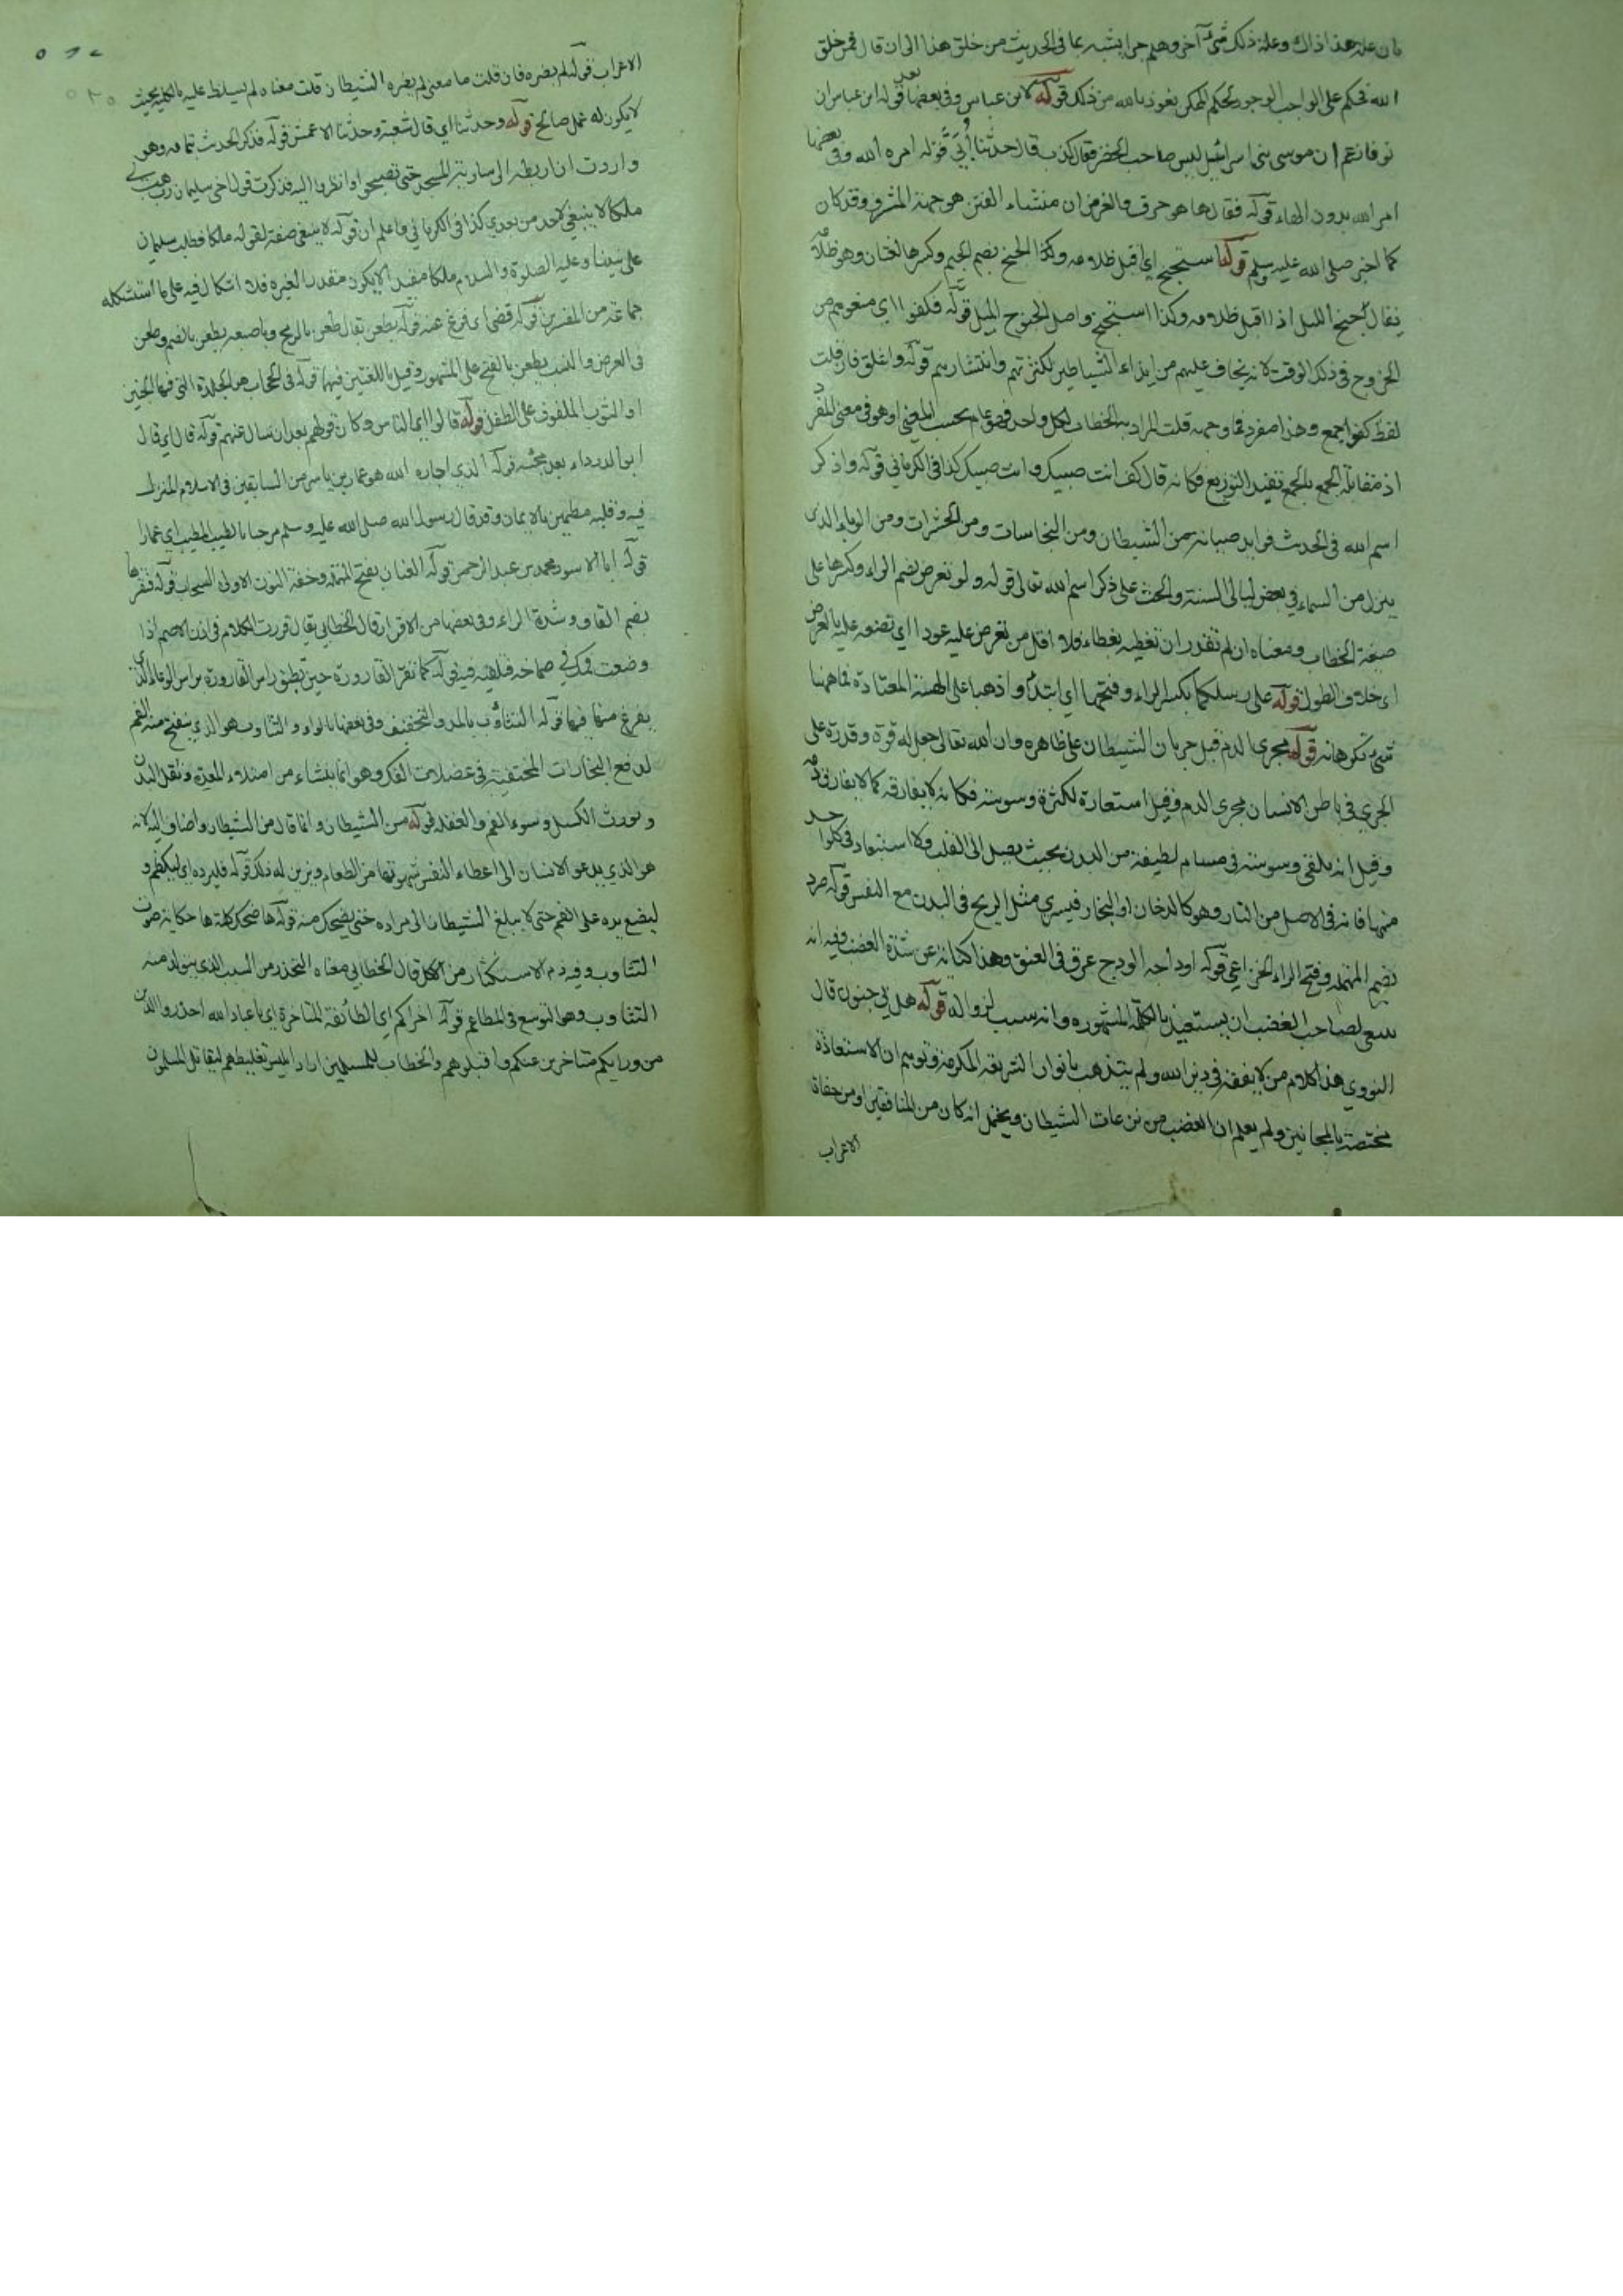 فان علة هذا ذاك وعلة ذلك شيء آخر وهلم جرا يشبه بما في الحديث من خلق هذا الى ان قال فمن خلق
الله فحكم على الواجب الوجود بحكم الممكن نعوذ بالله من ذلك قوله لابن عباس وفي بعضها بعد قوله ابن عباس ان
نوفا زعم ان موسى بنى اسرائيل ليس صاحب الخضر فقال كذب قال حدثنا أُبَيّ قوله امره الله وفي بعضها
امر الله بدون الهاء قوله فقال ها هو حرف والغرض ان منشاء الفتن هو جهة المشرق وقد كان
كما اخبر صلى الله عليه وسلم قوله استجنح اي اقبل ظلامه وكذا الجنح بضم الجيم وكسرها لغتان وهو ظلامه
يقال جنح الليل اذا اقبل ظلامه وكذا استجنح واصل الجنوح الميل قوله فكفوا اي منعوهم من
الخروج في ذلك الوقت لانه يخاف عليهم من ايذاء الشياطين لكثرتهم وانتشارهم قوله واغلق فان قلت
لفظ كفوا جمع وهذا مفرد فما وجهه قلت المراد به الخطاب لكل واحد فهو عام بحسب المعنى او هو في معنى المفرد
اذ مقابلة الجمع بالجمع تفيد التوزيع فكانه قال كف انت صبيك وانت صبيك كذا في الكرماني قوله واذكر
اسم الله في الحديث فوايد صيانته من الشيطان ومن النجاسات ومن الحشرات ومن الوباء الذي
ينزل من السماء في بعض ليالي السنة والحث على ذكر اسم الله تعالى قوله ولو تعرض بضم الراء وكسرها على
صيغة الخطاب ومعناه ان لم تقدر ان تغطيه بغطاء فلا اقل من تعرض عليه عودا اي تضعه عليه بالعرض
اي خلاف الطول قوله على رسلكما بكسر الراء وفتحها اي ابتدا واذهبا على الهينة المعتادة فما ههنا
شيء تكرهانه قوله مجرى الدم قيل جريان الشيطان على ظاهره وان الله تعالى جعل له قوة وقدرة على
الجري في باطن الانسان مجرى الدم وقيل استعارة لكثرة وسوسته فكانه لا يفارقه كما لا يفارق دمه
وقيل انه يلقي وسوسته في مسام لطيفة من البدن بحيث يصل الى القلب ولا استبعاد في كل واحد
منهما فانه في الاصل من النار وهو كالدخان او البخار فيسري مثل الريح في البدن مع النفس قوله صرد
بضم المهملة وفتح الراء الخزاعي قوله اوداجه الودج عرق في العنق وهذا كناية عن شدة الغضب وفيه انه
ينبغي لصاحب الغضب ان يستعيذ بالكلمة المشهورة وانه سبب لزواله قوله هل بي جنون قال
النووي هذا كلام من لا يفقه في دين الله ولم يتهذب بانوار الشريعة المكرمة وتوهم ان الاستعاذة
مختصة بالمجانين ولم يعلم ان الغضب من نزغات الشيطان ويحتمل انه كان من المنافقين او من جفاة
الاعراب
الاعراب قوله لم يضره فان قلت ما معنى لم يضره الشيطان قلت معناه لم يسلط عليه بالكلية بحيث
لا يكون له عمل صالح قوله وحدثنا اي قال شعبة وحدثنا الاعمش قوله فذكر الحديث بتمامه وهو
واردت ان اربطه الى سارية المسجد حتى تصبحوا وانظروا اليه فذكرت قول اخي سليمان رب هب لي
ملكا لا ينبغي لاحد من بعدي كذا في الكرماني فاعلم ان قوله لا ينبغي صفة لقوله ملكا فطلب سليمان
على نبينا وعليه الصلوة والسلام ملكا مقيدا لا يكون مقدرا لغيره فلا اشكال فيه على ما استشكله
جماعة من المفسرين قوله قضى اي فرغ عنه قوله يطعن يقال طعن بالرمح وباصبعه يطعن بالضم وطعن
في العرض والنسب يطعن بالفتح على المشهور وقيل باللغتين فيهما قوله في الحجاب هو الجلدة التي فيها الجنين
او الثوب الملفوف على الطفل قوله قالوا اي الناس وكان قولهم بعد ان سال عنهم قوله قال اي قال
ابو الدرداء بعد مجيئه قوله الذي اجاره الله هو عمار بن ياسر من السابقين في الاسلام المنزل
فيه وقلبه مطمئن بالايمان وقد قال رسول الله صلى الله عليه وسلم مرحبا بالطيب المطيب اي عمارا
قوله ابا الاسود محمد بن عبد الرحمن قوله العنان بفتح المهملة وخفة النون الاولى السحاب قوله فتقرها
بضم القاف وشدة الراء وفي بعضها من الاقرار قال الخطابي يقال قررت الكلام في اذن الاصم اذا
وضعت فمك في صماخه فتلقيه فيه قوله كما تقر القارورة حين يطبق راس القارورة براس الوعاء الذي
يفرغ منها فيها قوله التثاؤب بالمد والتخفيف وفي بعضها بالواو والتثاوب هو الذي ينفتح منه الفم
لدفع البخارات المختفية في عضلات الفك وهو انما ينشاء من امتلاء المعدة وثقل البدن
ويورث الكسل وسوء الفهم والغفلة قوله من الشيطان وانما قال من الشيطان واضاف اليه لانه
هو الذي يدعو الانسان الى اعطاء النفس شهوتها من الطعام ويزين له ذلك قوله فليرده اي ليكظم و
ليضع يده على الفم حتى لا يبلغ الشيطان الى مراده حتى يضحك منه قوله ها ضحك كلمة ها حكاية صوت
التثاوب وفيه ذم الاستكثار من الاكل قال الخطابي معناه التحذر من السبب الذي يتولد منه
التثاوب وهو التوسع في المطاعم قوله اخراكم اي الطائفة المتاخرة اي يا عباد الله احذروا الذين
من ورايكم متاخرين عنكم واقتلوهم والخطاب للمسلمين اراد ابليس تغليطهم ليقاتل المسلمون